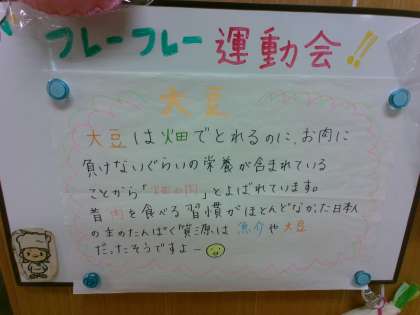 フレーフレー 運動会!!
大豆
大豆は畑でとれるのに、お肉に
負けないぐらいの栄養が含まれている
ことから「畑の肉」とよばれています。
昔肉を食べる習慣がほとんどなかった日本人
の主のたんぱく質源は魚介や大豆
だったそうですよー